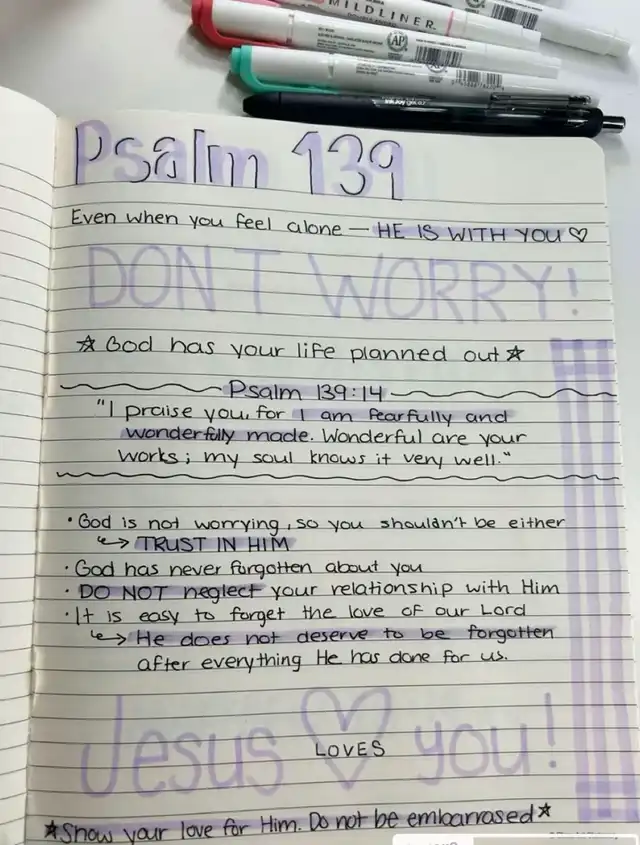 MILDLINER
AP
AP
AP
Psalm 139
Even when you feel alone — HE IS WITH YOU ♡
DON'T WORRY!
☆ God has your life planned out ☆
Psalm 139:14
"I praise you, for I am fearfully and
wonderfully made. Wonderful are your
works; my soul knows it very well."
· God is not worrying, so you shouldn't be either
↳ TRUST IN HIM
· God has never forgotten about you
· DO NOT neglect your relationship with Him
· It is easy to forget the love of our Lord
↳ He does not deserve to be forgotten
after everything He has done for us.
Jesus ♡ you!
LOVES
★ Show your love for Him. Do not be embarrased ★